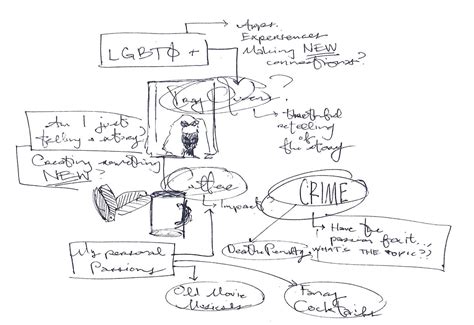 Apps.
Experiences
Making NEW
connections?
LGBTQ +
?
Truthful
retelling
of
the story
Am I just
telling a story?
Creating something
NEW?
Coffee
Impact?
CRIME
Have the
passion for it...
Death Penalty
WHAT'S THE TOPIC??
My personal
Passions
Old Movie
Musicals
Fancy
Cocktails